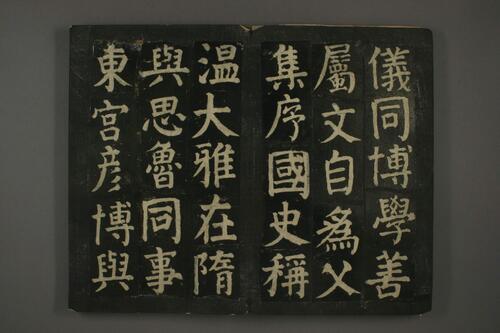 儀同博學善
屬文自爲父
集序國史稱
温大雅在隋
與思魯同事
東宮彦博與